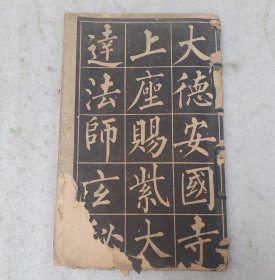 大德安國寺
上座賜紫大
達法師玄祕